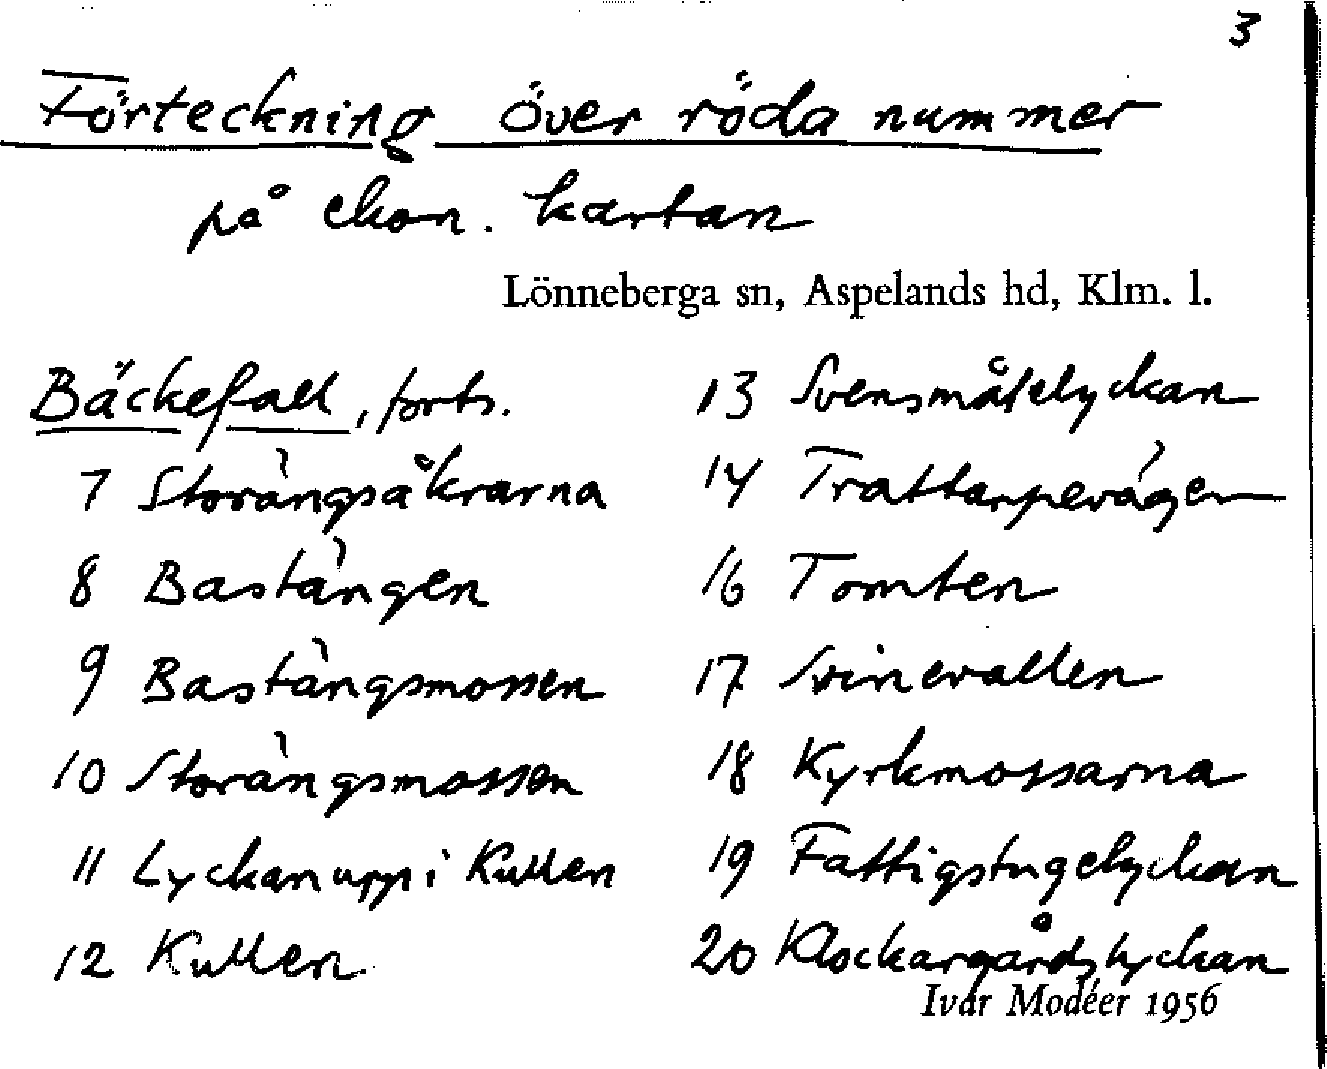 3
Förteckning över röda nummer
på ekon. kartan
Lönneberga sn, Aspelands hd, Klm. l.
Bäckefall, forts.
7 Storängsåkrarna
8 Bastängen
9 Bastängsmossen
10 Storängsmossen
11 Lyckan uppi Kullen
12 Kullen
13 Svensmålelyckan
14 Trattarpevägen
16 Tomten
17 Svinevallen
18 Kyrkmossarna
19 Fattigstugelyckan
20 Klockargårdslyckan
Ivar Modéer 1956